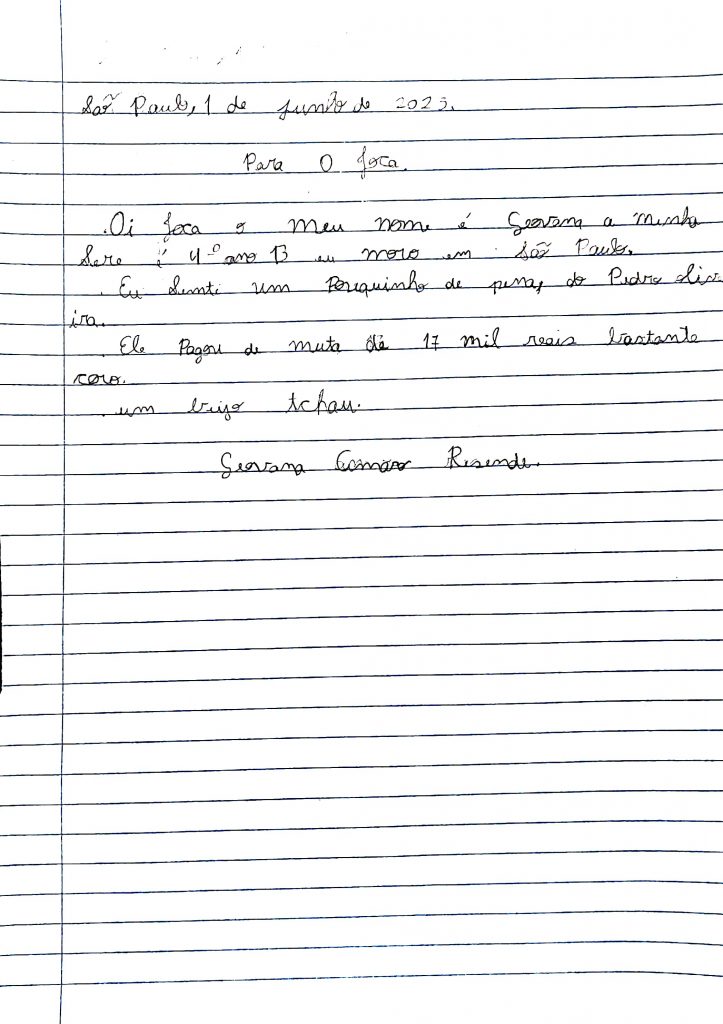 São Paulo, 1 de junho de 2023.
Para O Joca.
.Oi Joca o meu nome é Geovana a minha
Sere é 4º ano B eu moro em São Paulo.
. Eu Senti um Pouquinho de pena, do Pedro Siv-
ira.
. Ele Pagou de muta de 17 mil reais bastante
coro.
. um beijo tchau.
Geovana Resende.